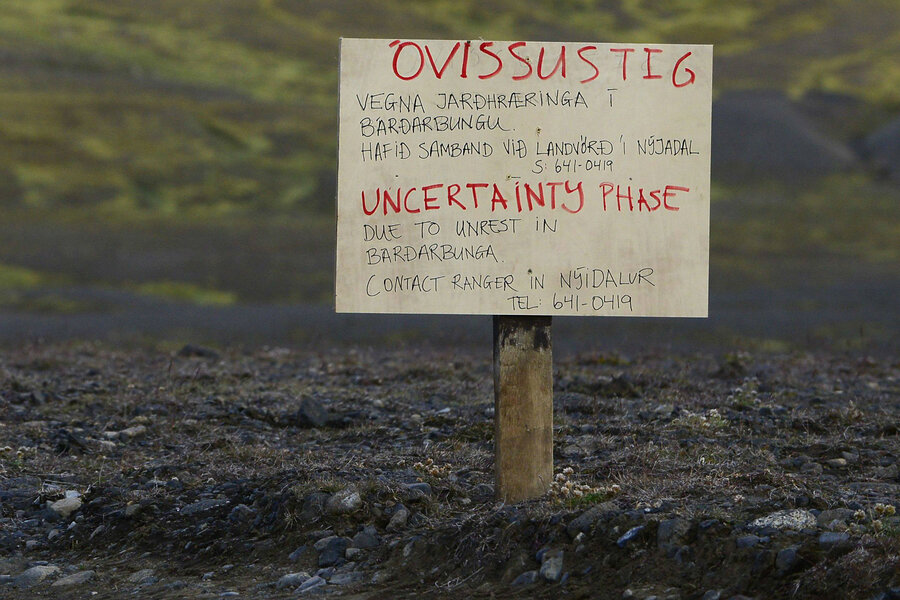 ÓVISSUSTIG
VEGNA JARÐHRÆRINGA Í
BÁRÐARBUNGU.
HAFIÐ SAMBAND VIÐ LANDVÖRÐ Í NÝJADAL
S: 641-0419
UNCERTAINTY PHASE
DUE TO UNREST IN
BÁRÐARBUNGA.
CONTACT RANGER IN NÝIDALUR
TEL: 641-0419